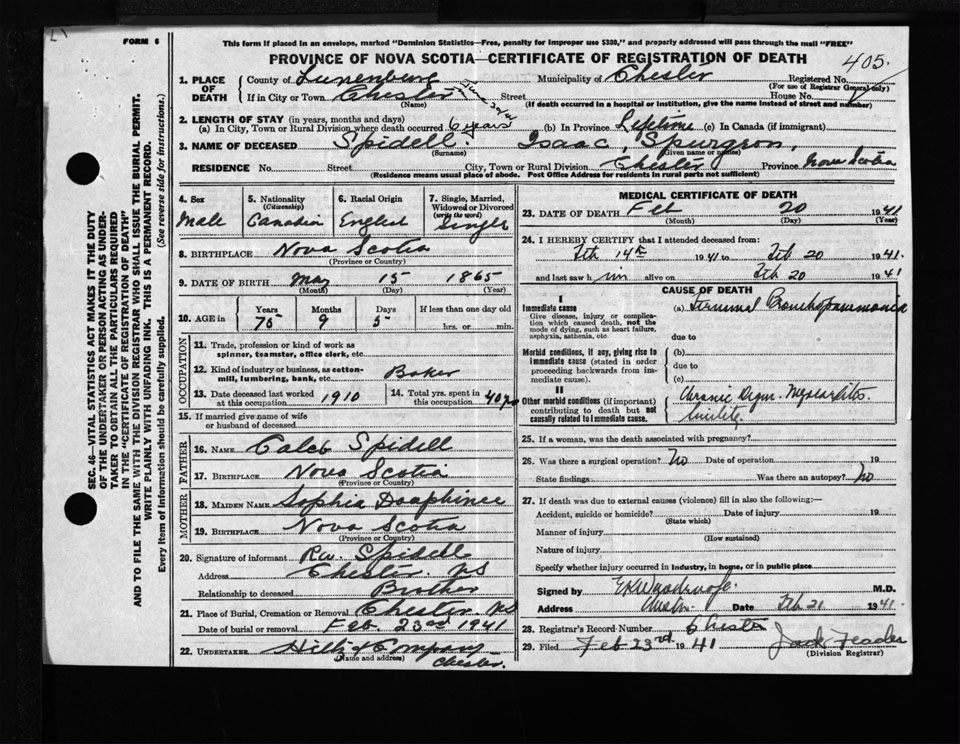 FORM 6
This form if placed in an envelope, marked "Dominion Statistics—Free, penalty for improper use $300," and properly addressed will pass through the mail "FREE"
PROVINCE OF NOVA SCOTIA—CERTIFICATE OF REGISTRATION OF DEATH
405
1. PLACE OF DEATH County of Lunenburg Municipality of Chester Registered No.
(For use of Registrar General only)
If in City or Town Chester Street House No.
(Name) (If death occurred in a hospital or institution, give the name instead of street and number)
2. LENGTH OF STAY (in years, months and days)
(a) In City, Town or Rural Division where death occurred 6 years (b) In Province Lifetime (c) In Canada (if immigrant)
3. NAME OF DECEASED Spidell Isaac, Spurgeon,
(Surname) (Given name or names)
RESIDENCE No. Street City, Town or Rural Division Chester Province Nova Scotia
(Residence means usual place of abode. Post Office Address for residents in rural parts not sufficient)
4. Sex Male
5. Nationality (Citizenship) Canadian
6. Racial Origin English
7. Single, Married, Widowed or Divorced (write the word) Single
8. BIRTHPLACE Nova Scotia
(Province or Country)
9. DATE OF BIRTH May 15 1865
(Month) (Day) (Year)
10. AGE in Years Months Days If less than one day old
75 9 5 hrs. or min.
OCCUPATION
11. Trade, profession or kind of work as spinner, teamster, office clerk, etc.
12. Kind of industry or business, as cotton-mill, lumbering, bank, etc. Baker
13. Date deceased last worked at this occupation 1910
14. Total yrs. spent in this occupation 40 yrs
15. If married give name of wife or husband of deceased
FATHER
16. NAME Caleb Spidell
17. BIRTHPLACE Nova Scotia
MOTHER
18. MAIDEN NAME Sophia Daaphinee
19. BIRTHPLACE Nova Scotia
(Province or Country)
20. Signature of informant Spidell
Address Chester NS
Relationship to deceased Brother
21. Place of Burial, Cremation or Removal Chester NS
Date of burial or removal Feb. 23rd 1941
22. UNDERTAKER Hiltz & Company
(Name and address) Chester.
MEDICAL CERTIFICATE OF DEATH
23. DATE OF DEATH Feb 20 1941
(Month) (Day) (Year)
24. I HEREBY CERTIFY that I attended deceased from:
Feb 14th 1941 to Feb 20 1941.
and last saw him alive on Feb 20 1941
CAUSE OF DEATH
I
Immediate cause (a) Terminal Bronchopneumonia
Give disease, injury or complication which caused death, not the mode of dying, such as heart failure, asphyxia, asthenia, etc.
due to
Morbid conditions, if any, giving rise to immediate cause (stated in order proceeding backwards from immediate cause). (b)
due to
(c)
II
Other morbid conditions (if important) contributing to death but not causally related to immediate cause. Chronic Myocarditis.
Senility.
25. If a woman, was the death associated with pregnancy?
26. Was there a surgical operation? No Date of operation 19
State findings Was there an autopsy? No
27. If death was due to external causes (violence) fill in also the following:—
Accident, suicide or homicide? Date of injury 19
(State which)
Manner of injury
(How sustained)
Nature of injury
Specify whether injury occurred in industry, in home, or in public place
Signed by M.D.
Address Date Feb. 21 1941.
28. Registrar's Record Number Chester
29. Filed Feb 23rd 1941 Jack Feader
(Division Registrar)
SEC. 46—VITAL STATISTICS ACT MAKES IT THE DUTY
OF THE UNDERTAKER OR PERSON ACTING AS UNDER-
TAKER TO OBTAIN ALL THE PARTICULARS REQUIRED
IN THE "CERTIFICATE OF REGISTRATION OF DEATH"
AND TO FILE THE SAME WITH THE DIVISION REGISTRAR WHO SHALL ISSUE THE BURIAL PERMIT.
WRITE PLAINLY WITH UNFADING INK. THIS IS A PERMANENT RECORD.
Every item of information should be carefully supplied. (See reverse side for instructions.)